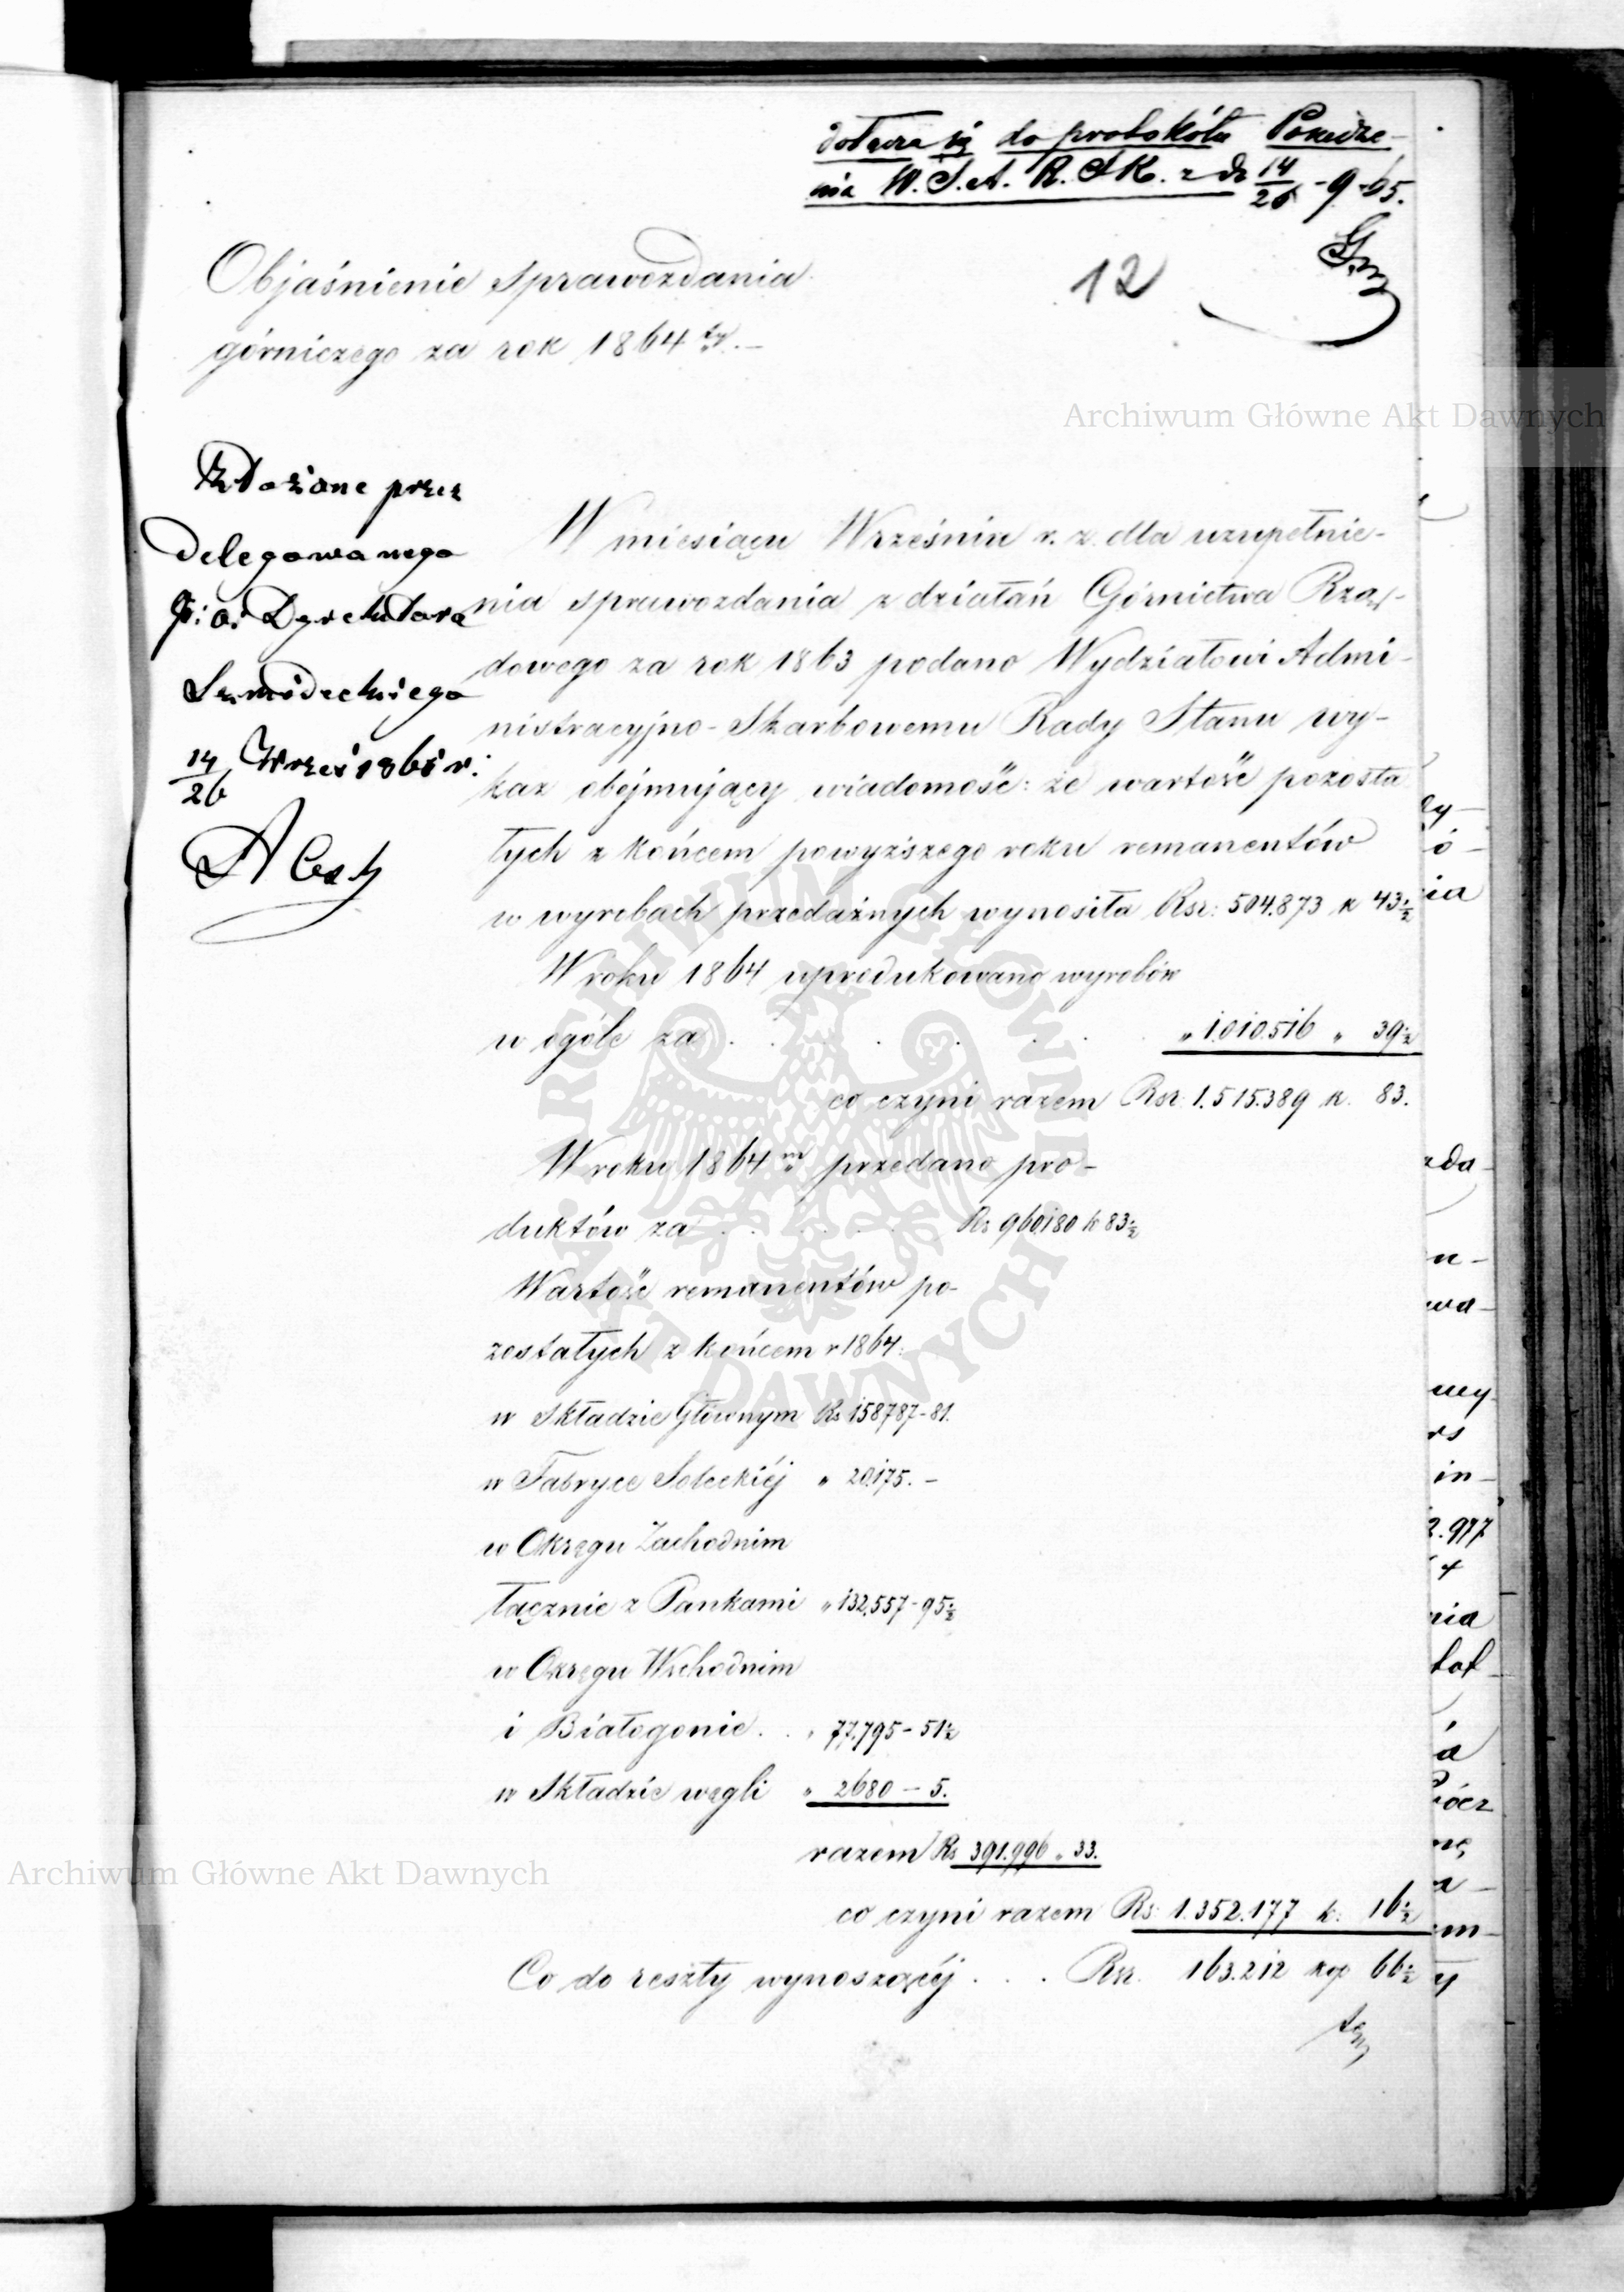 dołącza się do protokółu Posiedze-
nia W. S. A. R. S K. z d. 14/26 - 9 - 65.
12
Objaśnienie sprawozdania
górniczego za rok 1864ty. -
Archiwum Główne Akt Dawnych
Złożone przez
delegowanego
p: o: Dyrektora
14/26 Wrześ 1865 r.
W miesiącu Wrześniu r. z. dla uzupełnie-
nia sprawozdania z działań Górnictwa Rzą-
dowego za rok 1863 podano Wydziałowi Admi-
nistracyjno-Skarbowemu Rady Stanu wy-
kaz obejmujący wiadomość: że wartość pozosta
łych z końcem powyższego roku remanentów
w wyrobach przedażnych wynosiła Rsr: 504.873 k 43½
W roku 1864 uprodukowano wyrobów
w ogóle za . . . . . . „ 1.010.516 „ 39½
co czyni razem Rsr: 1.515.389 k. 83.
W roku 1864m przedano pro-
duktów za . . . . . . Rs 960.180 k 83½
Wartość remanentów po-
zostałych z końcem r 1864:
w Składzie Głównym Rs 158787-81.
w Fabryce Soleckiéj „ 20.175. -
w Okręgu Zachodnim
łącznie z Pankami „ 132.557-95½
w Okręgu Wschodnim
i Białogonie . . „ 77.795-51½
w Składzie węgli „ 2680 - 5.
razem Rs 391.996 „ 33.
Archiwum Główne Akt Dawnych
co czyni razem Rs: 1.352.177 k: 16½
Co do reszty wynoszącéj . . . Rsr. 163.212 kop 66½
ARCHIWUM GŁÓWNE AKT DAWNYCH